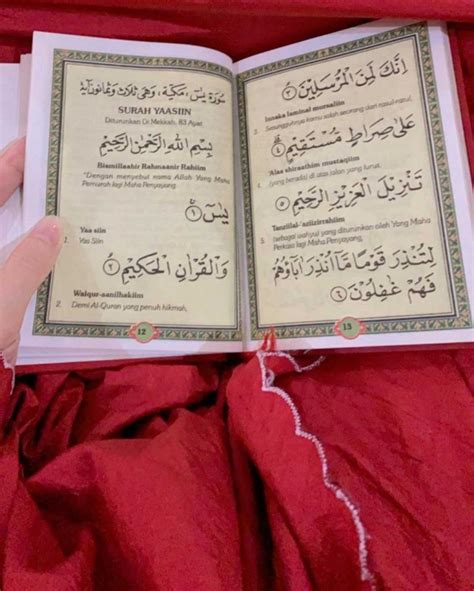 سُوْرَةُ يٰسۤ، مَكِّيَّةٌ، وَهِيَ ثَلَاثٌ وَثَمَانُوْنَ اٰيَةً
SURAH YAASIIN
Diturunkan Di Mekkah, 83 Ayat
بِسْمِ اللّٰهِ الرَّحْمٰنِ الرَّحِيْمِ
Bismillaahir Rahmaanir Rahiim
"Dengan menyebut nama Allah Yang Maha
Pemurah lagi Maha Penyayang.
يٰسۤ ۝١
Yaa siin
1. Yaa Siin
وَالْقُرْاٰنِ الْحَكِيْمِ ۝٢
Walqur-aanilhakiim
2. Demi Al-Quran yang penuh hikmah,
12
اِنَّكَ لَمِنَ الْمُرْسَلِيْنَ ۝٣
Innaka laminal mursaliin
3. Sesungguhnya kamu salah seorang dari rasul-rasul,
عَلٰى صِرَاطٍ مُّسْتَقِيْمٍ ۝٤
'Alaa shiraathim mustaqiim
4. (yang berada) di atas jalan yang lurus,
تَنْزِيْلَ الْعَزِيْزِ الرَّحِيْمِ ۝٥
Tanziilal-'aziizirrahiim
5. (sebagai wahyu) yang diturunkan oleh Yang Maha
Perkasa lagi Maha Penyayang,
لِتُنْذِرَ قَوْمًا مَّآ اُنْذِرَ اٰبَاۤؤُهُمْ
فَهُمْ غٰفِلُوْنَ ۝٦
13